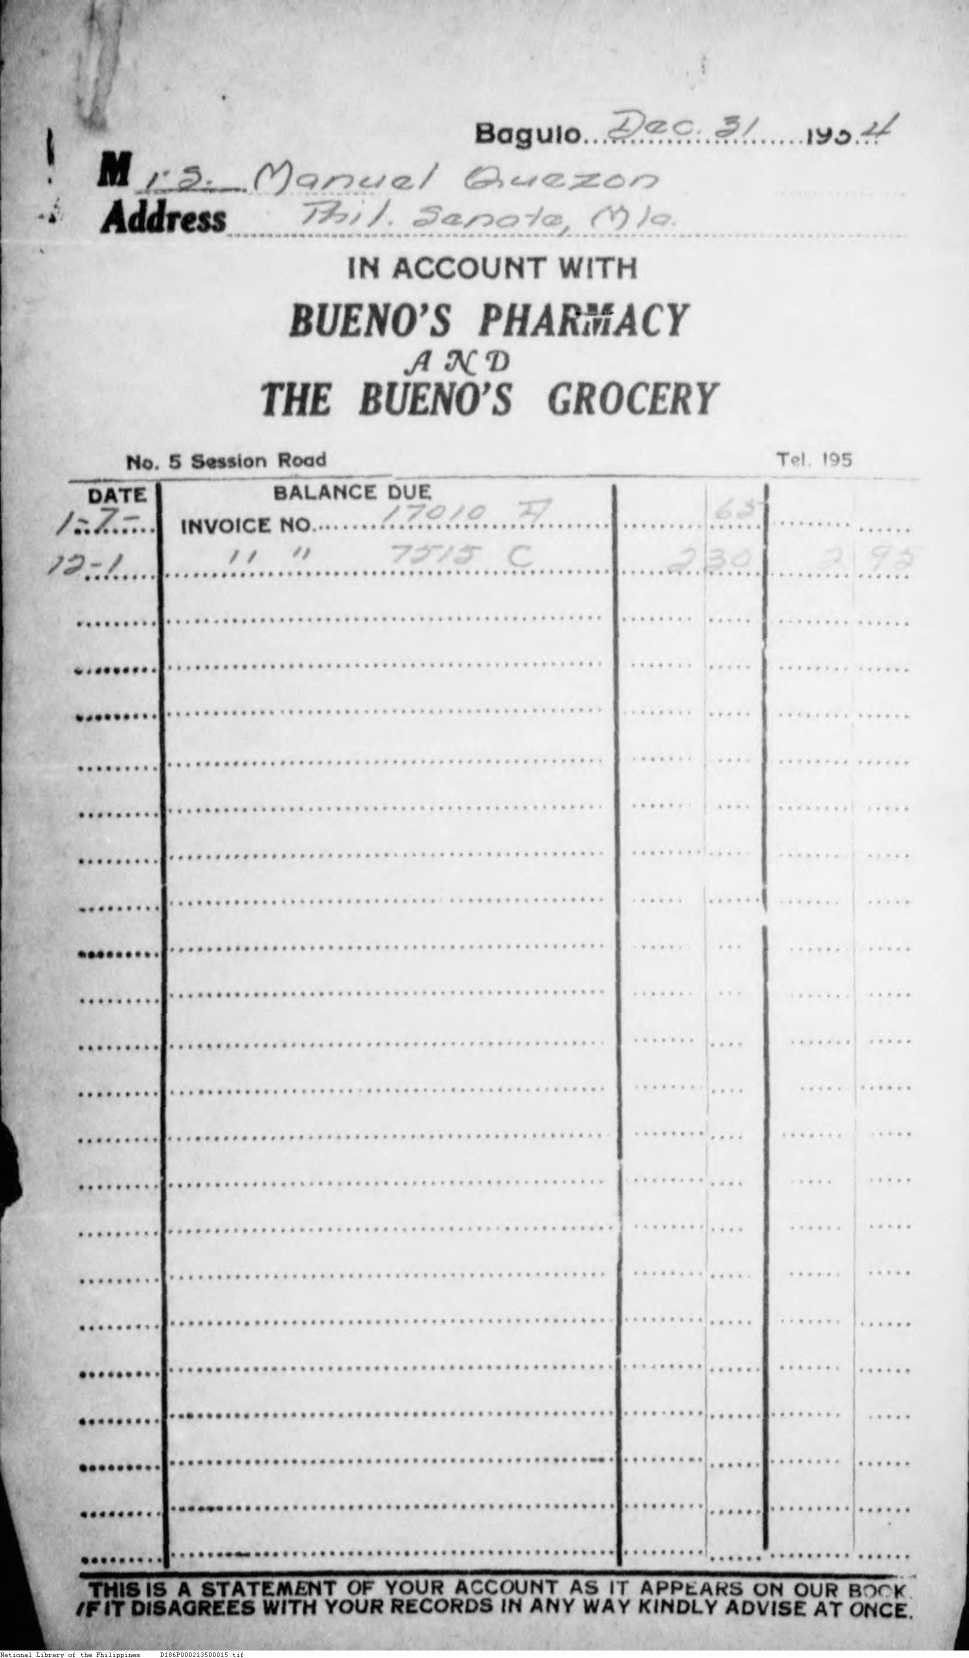 Baguio...Dec. 31......1934
Mrs. Manuel Quezon
Address Phil. Senate, Mla.
IN ACCOUNT WITH
BUENO'S PHARMACY
AND
THE BUENO'S GROCERY
No. 5 Session Road Tel. 195
DATE BALANCE DUE
1-7- INVOICE NO. 17010 65
12-1 " " 7515 C 2 30 2 95
THIS IS A STATEMENT OF YOUR ACCOUNT AS IT APPEARS ON OUR BOOK
IF IT DISAGREES WITH YOUR RECORDS IN ANY WAY KINDLY ADVISE AT ONCE.
National Library of the Philippines D186P000213500015.tif